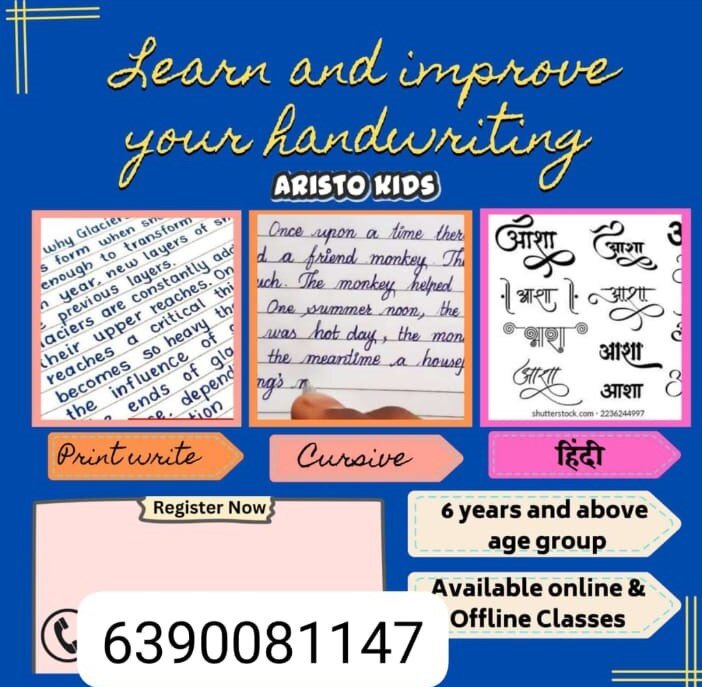 Learn and improve
your handwriting
ARISTO KIDS
why Glacier
form when sn
enough to transform
year, new layers of sn
previous layers.
laciers are constantly add
their upper reaches. On
reaches a critical thi
becomes so heavy tha
the influence of
ends of gla
depend
tion
Once upon a time ther
d a friend monkey. Th
uch. The monkey helped
One summer noon, the
was hot day, the mon
the meantime a house
ng's
आशा
आशा
आशा
आशा
आशा
आशा
आशा
आशा
shutterstock.com · 2236244997
Print write
Cursive
हिंदी
Register Now
6 years and above
age group
Available online &
Offline Classes
6390081147